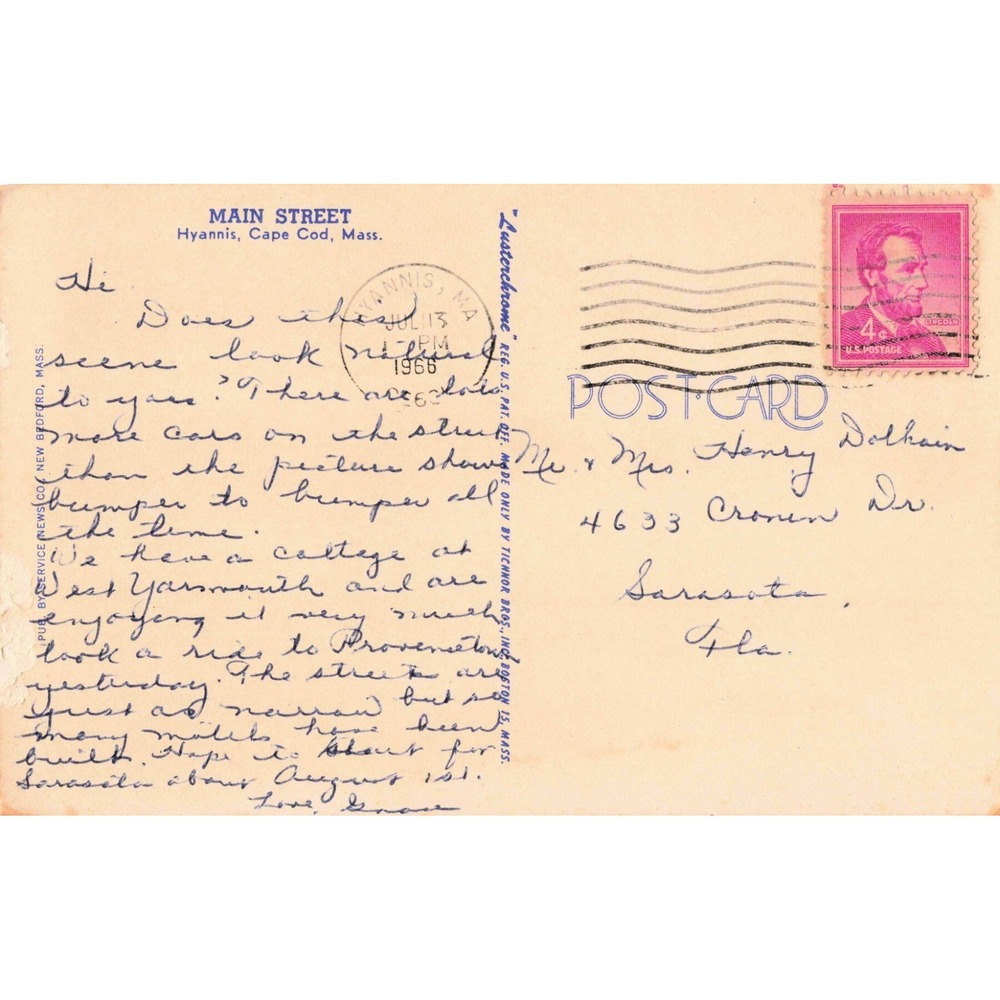 MAIN STREET
Hyannis, Cape Cod, Mass.
Hi
Does this
scene look natural
to you? There are lots
more cars on the street
than the picture shows
bumper to bumper all
the time.
We have a cottage at
West Yarmouth and are
enjoying it very much
took a ride to Provincetown
yesterday. The streets are
just as narrow but so
many motels have been
built. Hope to start for
Sarasota about August 1st.
Love, Grace
PUB. BY SERVICE NEWS CO., NEW BEDFORD, MASS.
"Lusterchrome REG. U.S. PAT. OFF. MADE ONLY BY TICHNOR BROS., INC., BOSTON 15, MASS.
HYANNIS, MA
JUL 13
1 - PM
1966
LINCOLN
4¢
U.S. POSTAGE
POST CARD
Mr. & Mrs. Henry
4633 Dr.
Sarasota,
Fla.